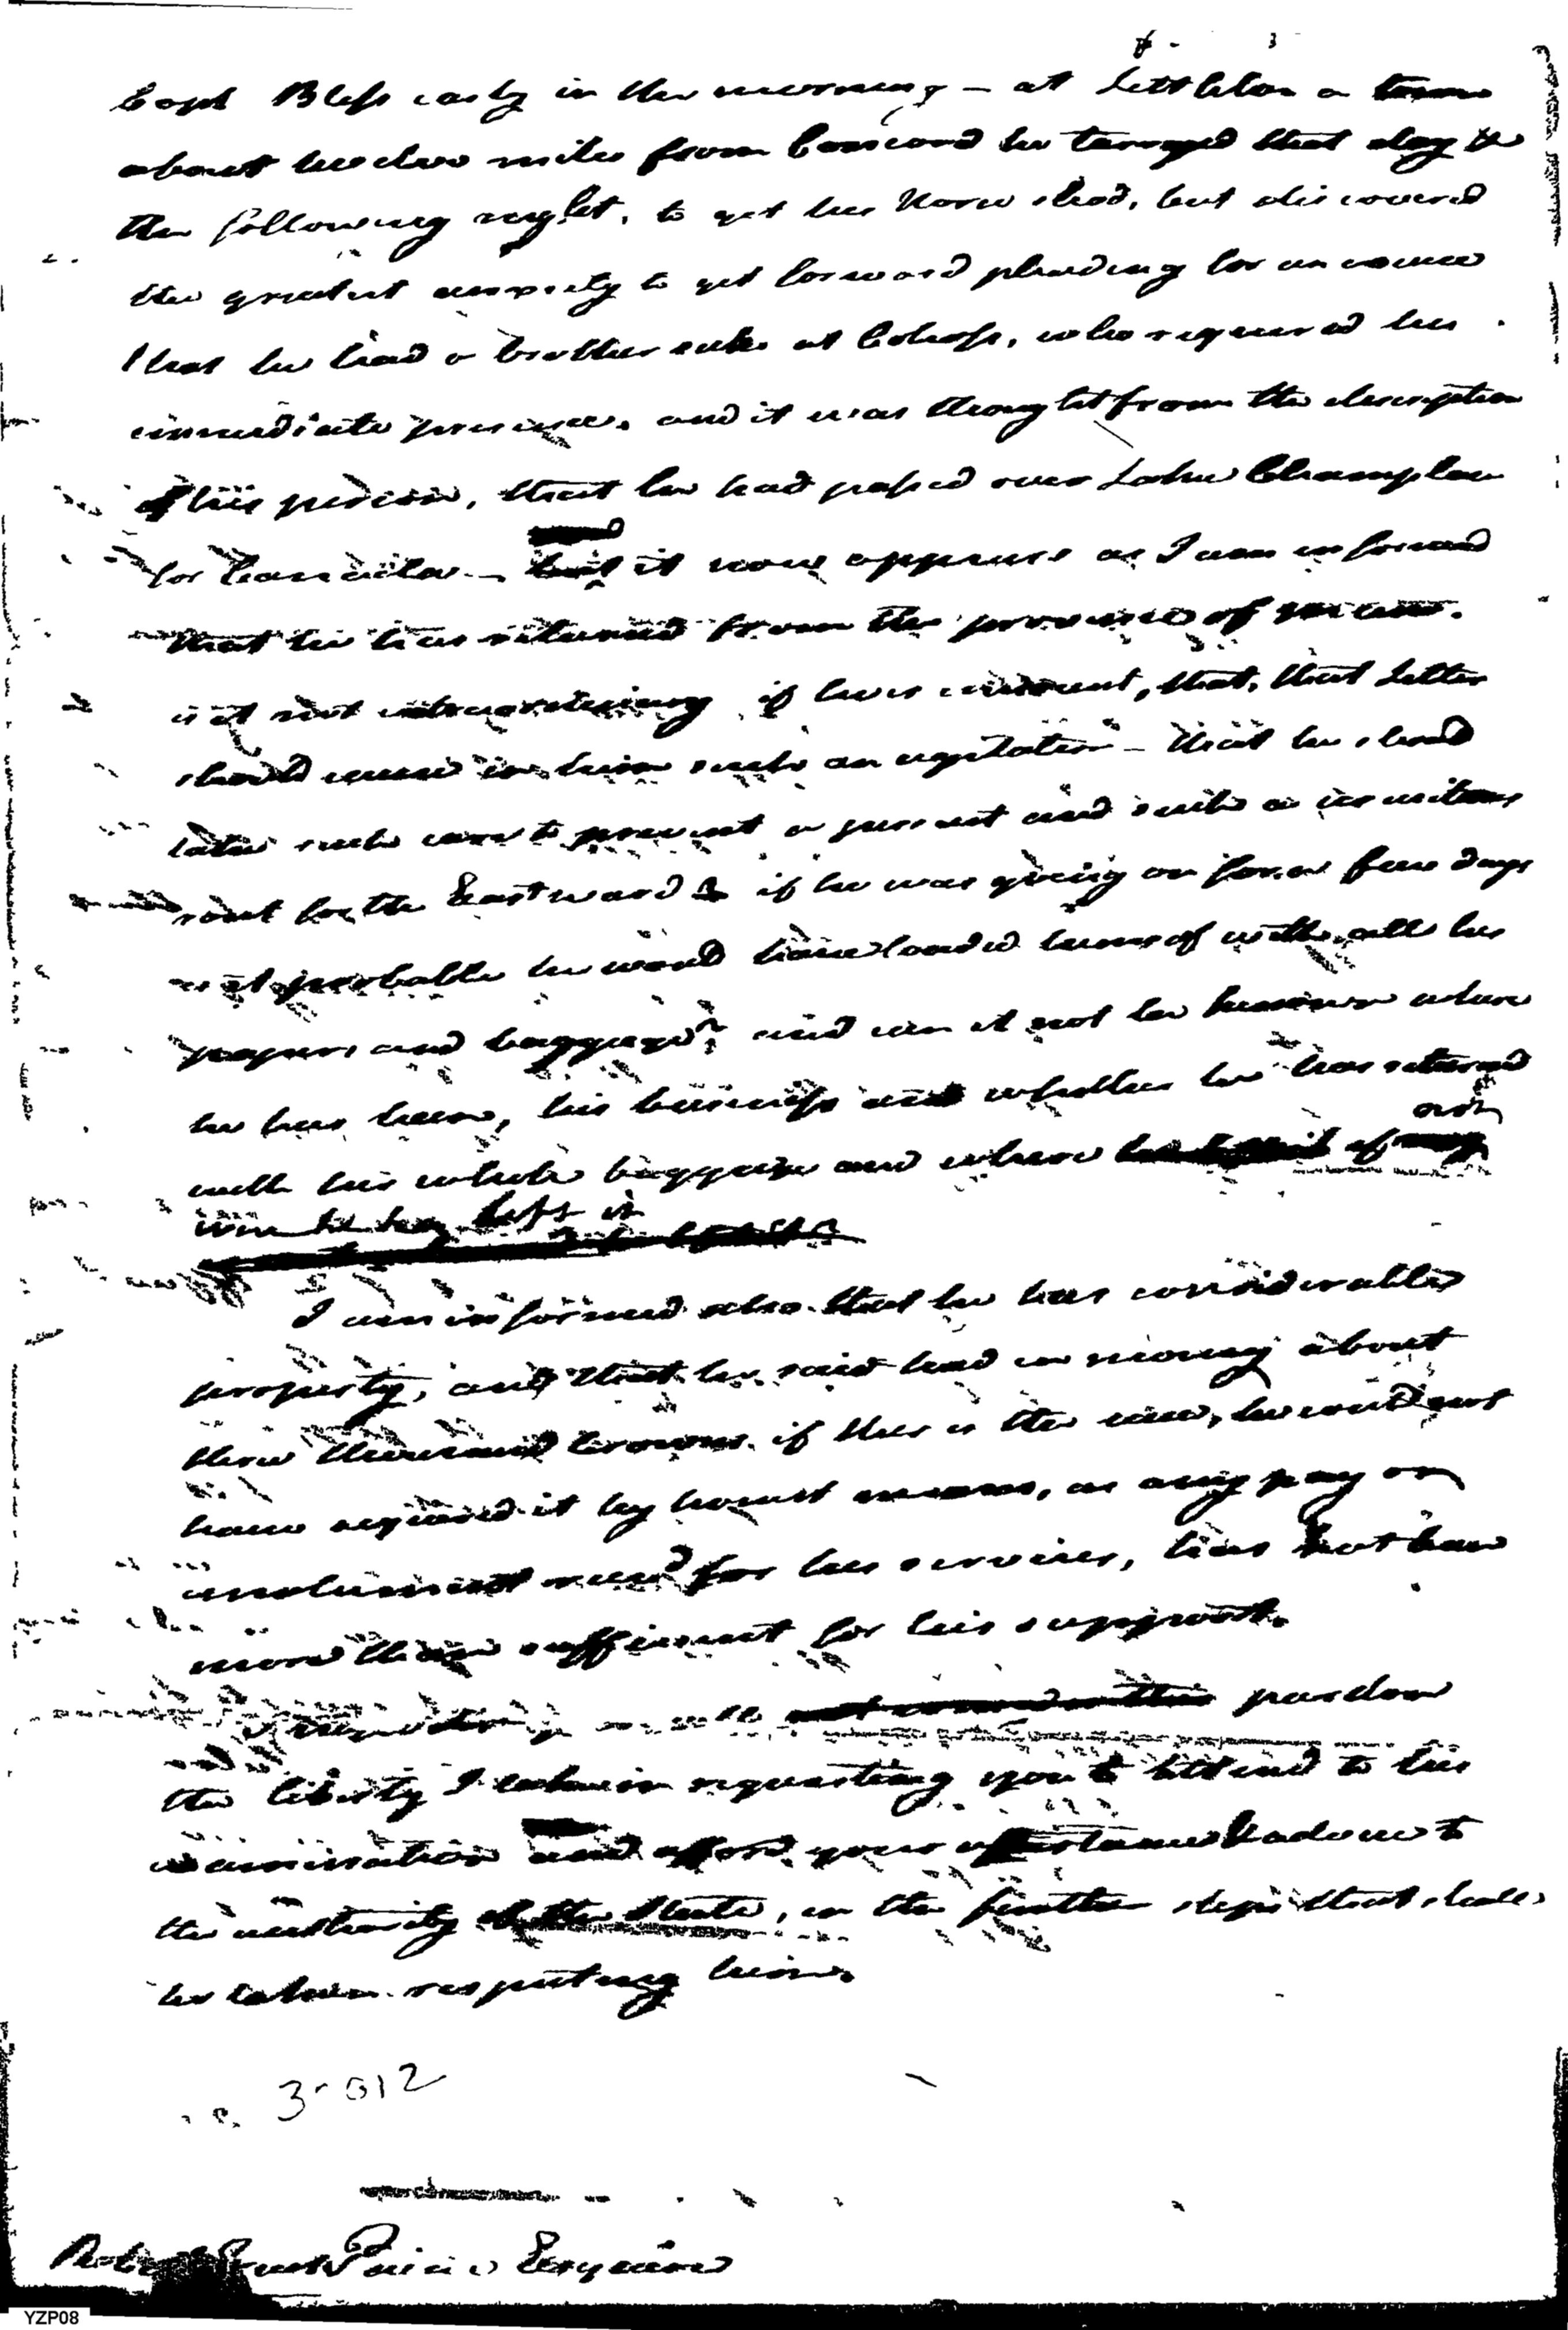 Capt Bliss early in the morning – at Littleton a town
about twelve miles from Concord he tarryed that day &
the following night, to get his Horse shod, but discovered
the greatest anxiety to get forward pleading for an excuse
that he had a brother sick at Cohoss, who required his
immediate presence. and it was thought from the description
of his person, that he had passed over Lake Champlain
for Canada – but it now appears as I am informed
that he has returned from the province of
is it not extraordinary if he is innocent, that, that letter
should cause in him such an agitation – that he should
take such care to prevent a pursuit and such a circuitous
rout for the Eastward & if he was going on for a few days
is it probable he would have loaded himself with all his
papers and baggage? and can it not be known where
he has been, his business and whether he has returned
with his whole baggage and where if not
he has left it
I am informed also that he has considerable
property, and that he said had in money about
three thousand Crowns. if this is the case, he could not
have acquired it by honest means, as any pay or
emolument recd for his services, has not been
more than sufficient for his support.
pardon
the liberty I take in requesting you to attend to his
examination and afford your assistance & advice to
the authority of the State, in the further steps that shall
be taken respecting him.
3-012
Robert Treat Paine Esquire
YZP08